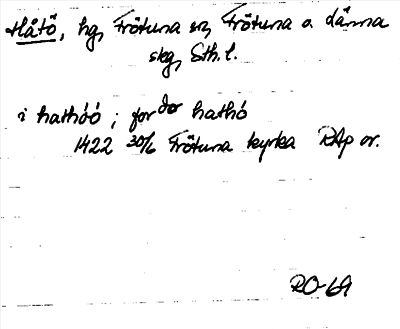 Håtö, hg, Frötuna sn, Frötuna o. Länna
skg, Sth. l.
i hathöö ; for dor hathö
1422 30/6 Frötuna kyrka RAp or.
RO-69